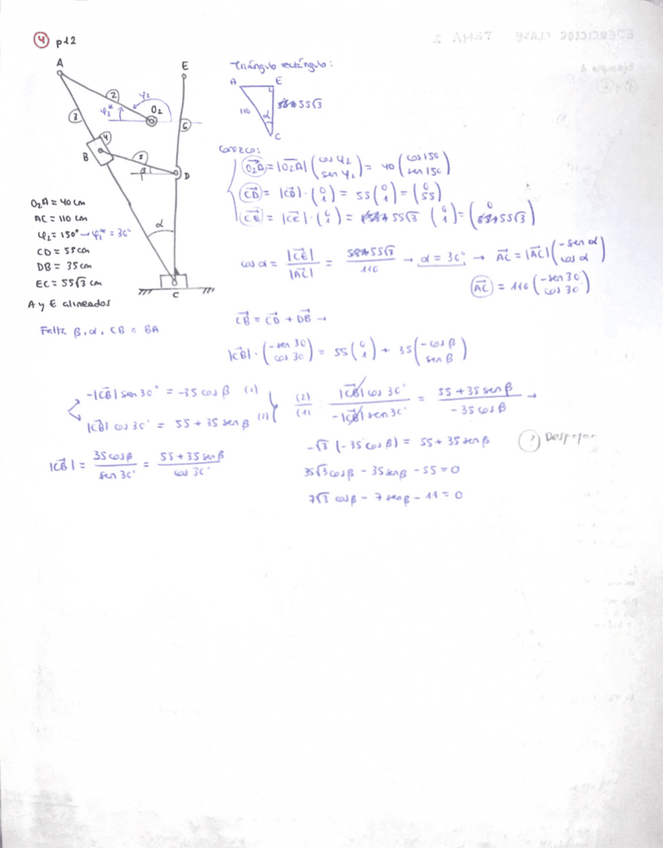 4 p12
A
E
2
φ₂
φ₂*
O₂
3
6
4
B
5
β
D
α
C
O₂A = 40 cm
AC = 110 cm
φ₂ = 150° → φ₂* = 30°
CD = 55 cm
DB = 35 cm
EC = 55√3 cm
A y E alineados
Falta β, α, CB o BA
Triángulo rectángulo:
A E
110 α 55√3
C
Conozco:
O₂A = |O₂A| (cos φ₂ sen φ₂) = 40 (cos 150 sen 150)
CD = |CD| · (0 1) = 55 (0 1) = (0 55)
CE = |CE| · (0 1) = 55√3 (0 1) = (0 55√3)
cos α = |CE| / |AC| = 55√3 / 110 → α = 30° → AC = |AC| (-sen α cos α)
AC = 110 (-sen 30 cos 30)
CB = CD + DB →
|CB| · (-sen 30 cos 30) = 55 (0 1) + 35 (-cos β sen β)
-|CB| sen 30° = -35 cos β (1)
|CB| cos 30° = 55 + 35 sen β (2)
(2)/(1) · |CB| cos 30° / -|CB| sen 30° = 55 + 35 sen β / -35 cos β →
|CB| = 35 cos β / sen 30° = 55 + 35 sen β / cos 30°
-√3 (-35 cos β) = 55 + 35 sen β
¿? Despejar
35√3 cos β - 35 sen β - 55 = 0
7√3 cos β - 7 sen β - 11 = 0